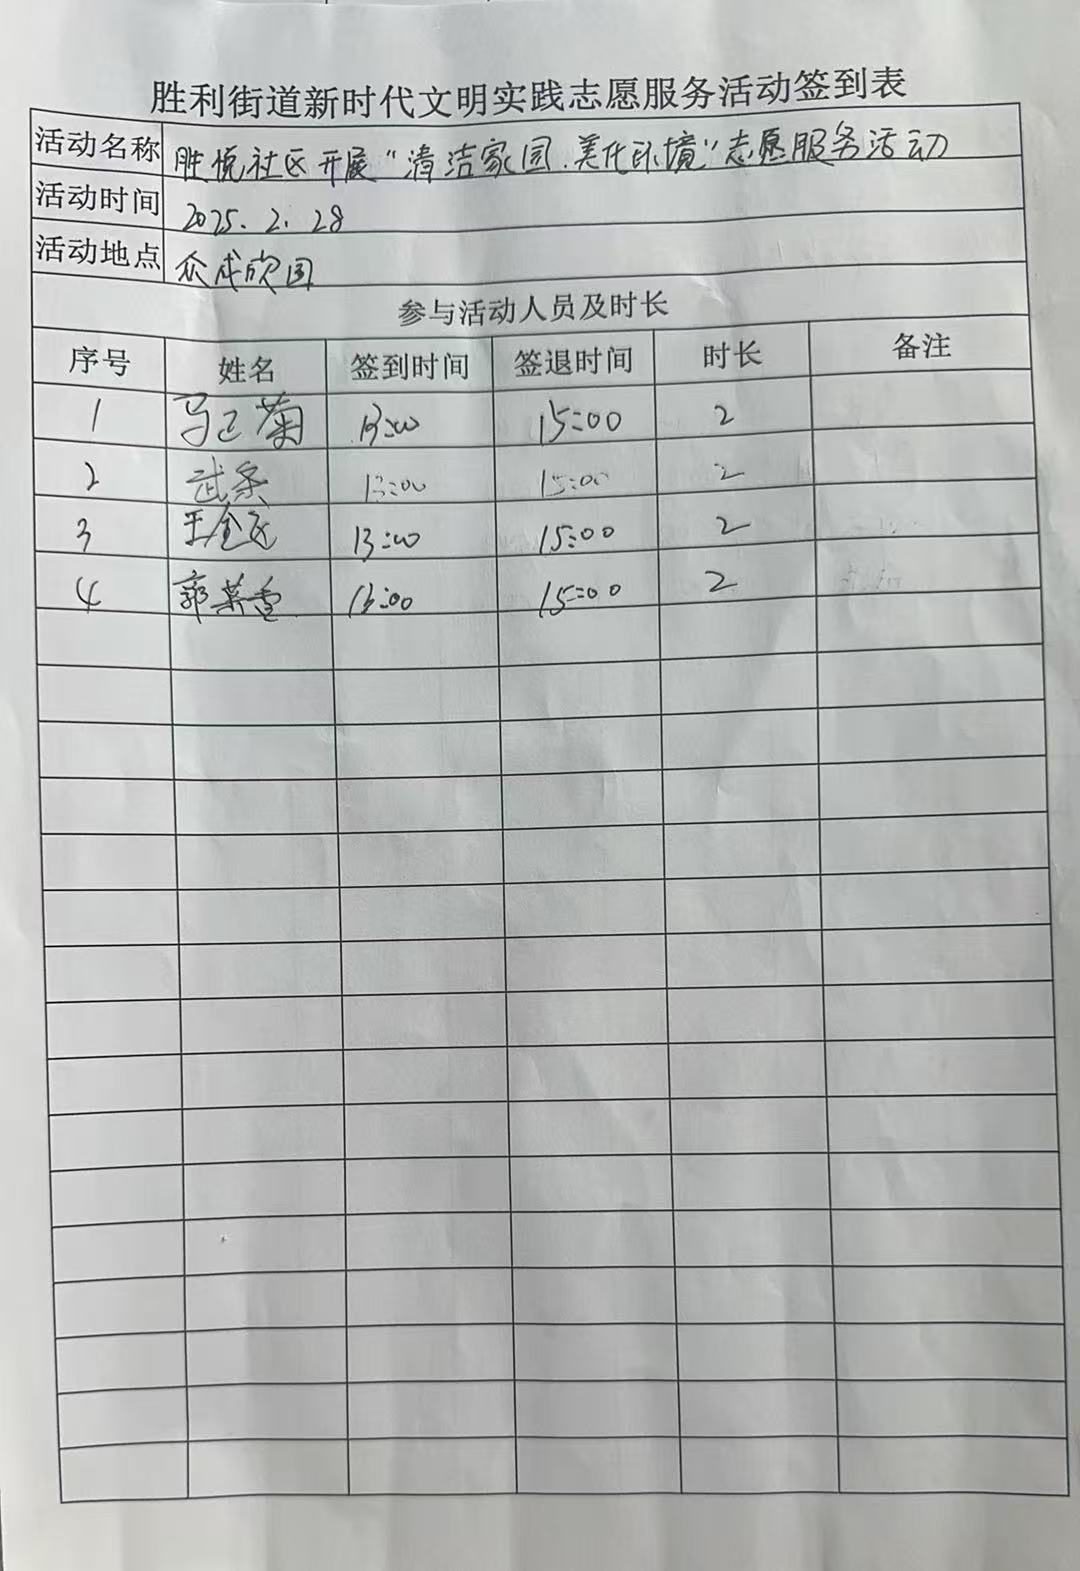 胜利街道新时代文明实践志愿服务活动签到表
活动名称 胜悦社区开展“清洁家园.美化环境”志愿服务活动
活动时间 2025.2.28
活动地点 众成欣园
参与活动人员及时长
序号 姓名 签到时间 签退时间 时长 备注
1 马 菊 13:00 15:00 2
2 武 13:00 15:00 2
3 王金 13:00 15:00 2
4 郭 13:00 15:00 2